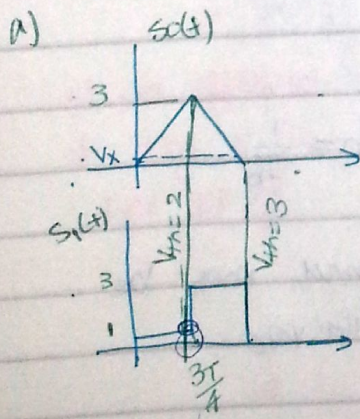 a) So(t)
3
Vx
S₁(t)
Vth=2
Vth=3
3
1
3T/4